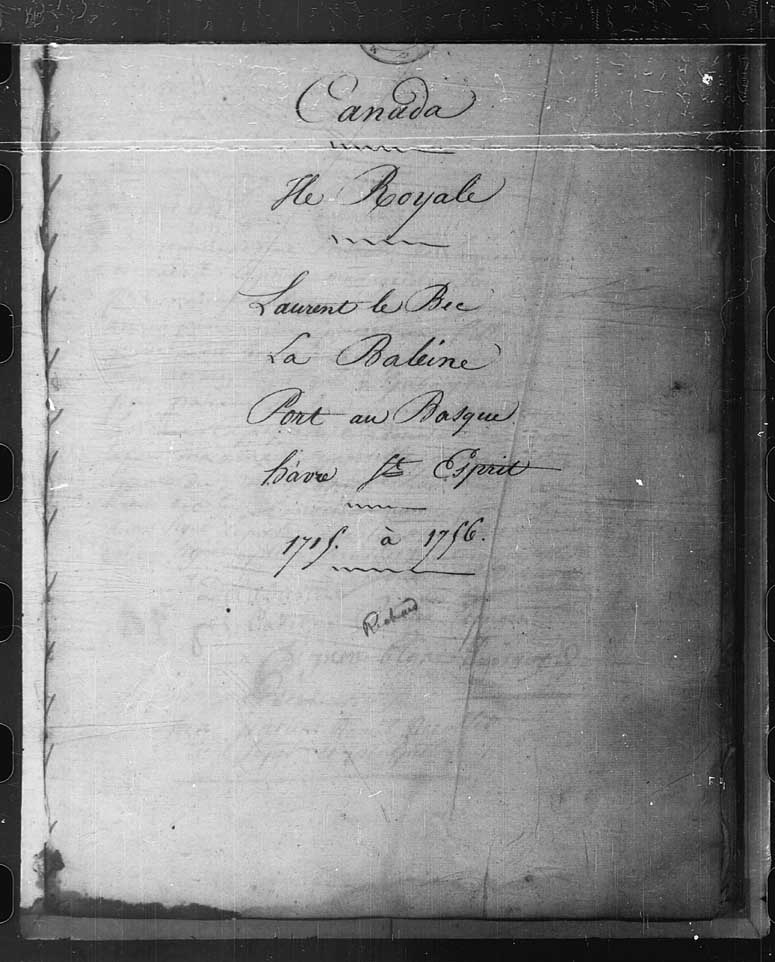 Canada
Ile Royale
Laurent le Bec
La Baleine
Port au Basque
hâvre St Esprit
1715. à 1756.
Richard